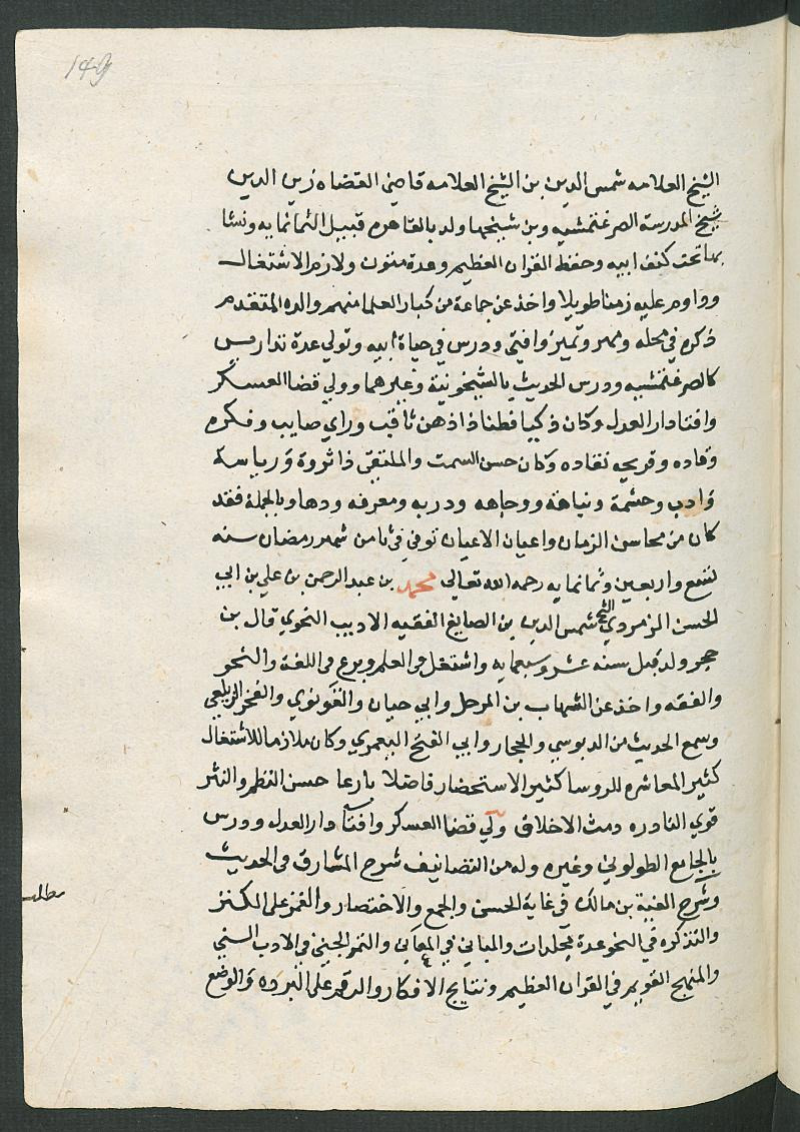 149
الشيخ العلامه شمس الدين بن الشيخ العلامه قاضي القضاه زين الدين
شيخ المدرسة الصرغتمشيه وبن شيخها ولد بالقاهره قبيل الثمانمايه ونشا
بها تحت كنف ابيه وحفظ القران العظيم وعدة متون ولازم الاشتغال
وداوم عليه زمنا طويلا واخذ عن جماعة من كبار العلما منهم والده المتقدم
ذكره في محله ومهر وتميز وافتي ودرس في حياة ابيه وتولي عدة تداريس
كالصرغتمشيه ودرس الحديث بالشيخونية وغيرهما وولي قضا العسكر
وافتا دار العدل وكان ذكيا فطنا ذا ذهن ثاقب وراي صايب وفكره
وقاده وقريحه نقاده وكان حسن السمت والملتقي ذا ثروة ورياسة
وادب وحشمة ونباهة ووجاهه ودربه ومعرفه ودها وبالجملة فقد
كان من محاسن الزمان واعيان الاعيان توفي في ثامن شهر رمضان سنه
تسع واربعين وثمانمايه رحمه الله تعالي محمد بن عبد الرحمن بن علي بن ابي
الحسن الزمردي الشيخ شمس الدين بن الصايغ الفقيه الاديب النحوي قال بن
حجر ولد قبل سنه عشر وسبعمايه واشتغل في العلم وبرع في اللغة والنحو
والفقه واخذ عن الشهاب بن المرحل وابي حيان والقونوي والفخر الزيلعي
وسمع الحديث من الدبوسي والحجار وابي الفتح اليعمري وكان ملازما للاشتغال
كثير المعاشره للروسا كثير الاستحضار فاضلا بارعا حسن النظم والنثر
قوي النادره دمث الاخلاق ولي قضا العسكر وافتآ دار العدل ودرس
بالجامع الطولوني وغيره وله من التصانيف شرح المشارق في الحديث
وشرح الفية بن مالك في غاية الحسن والجمع والاختصار والغمز على الكنز
مطلب
والتذكره في النحو عدة مجلدات والمباني في المعاني والثمر الجني في الادب السني
والمنهج القويم في القران العظيم ونتايج الافكار والرقم على البرده والوضع